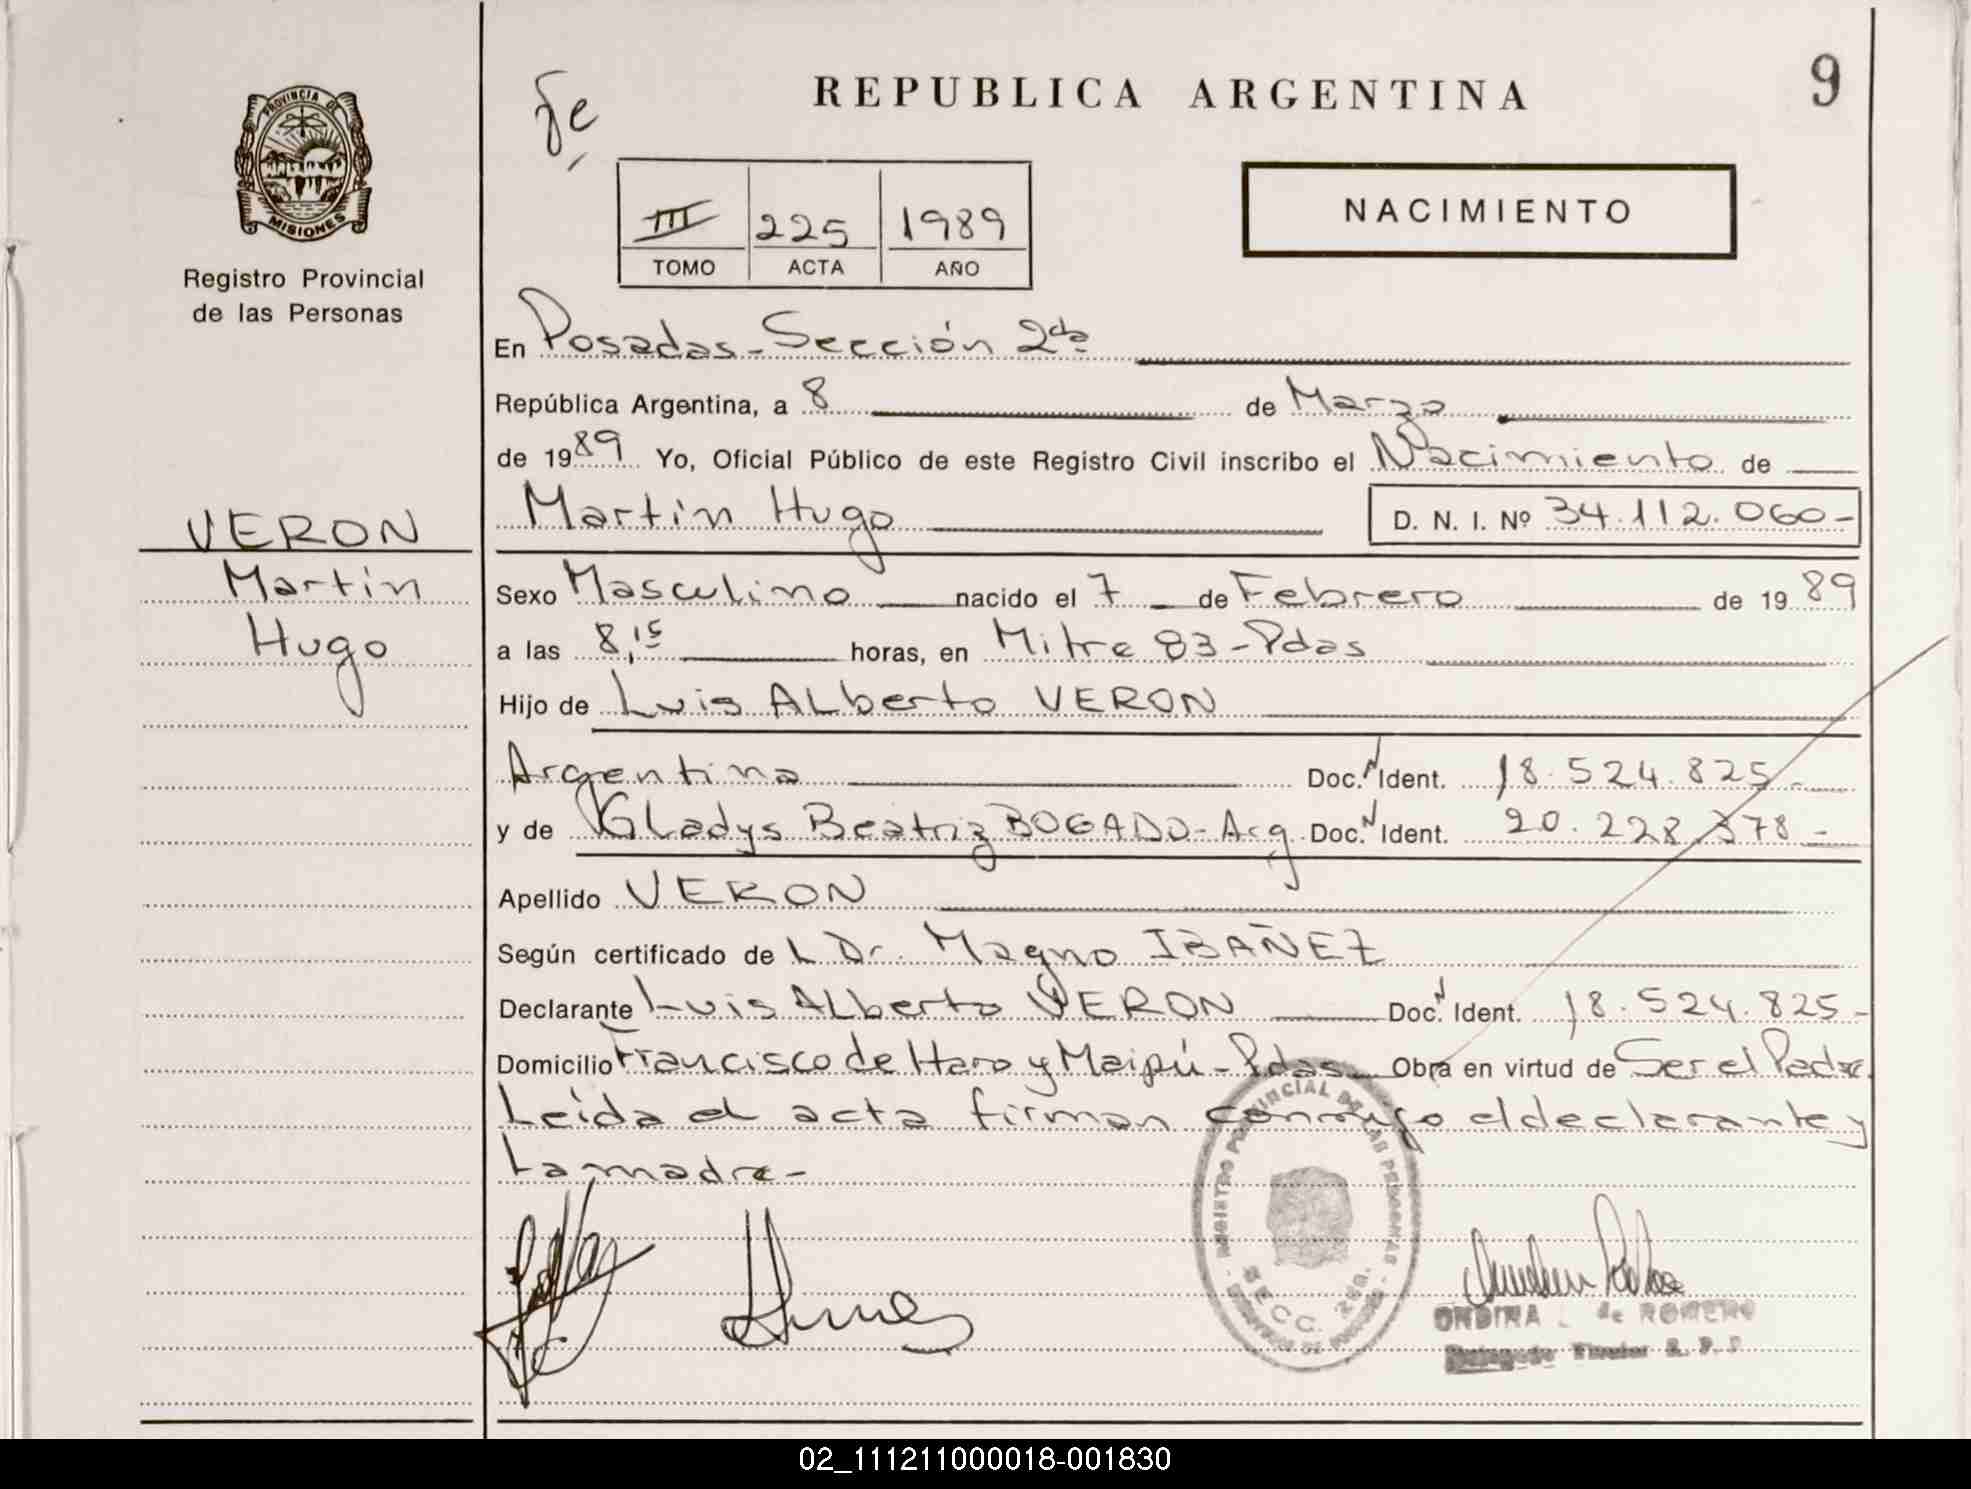 REPUBLICA ARGENTINA
9
PROVINCIA DE
MISIONES
Registro Provincial
de las Personas
III 225 1989
TOMO ACTA AÑO
NACIMIENTO
En Posadas - Sección 2da
República Argentina, a 8 de Marzo
de 1989 Yo, Oficial Público de este Registro Civil inscribo el Nacimiento de
Martín Hugo D. N. I. Nº 34.112.060-
VERON
Martín
Hugo
Sexo Masculino nacido el 7 de Febrero de 1989
a las 8,15 horas, en Mitre 83-Pdas
Hijo de Luis ALberto VERON
Argentina Doc. N Ident. 18.524.825-
y de GLadys Beatriz BOGADO-Arg. Doc. N Ident. 20.228.378-
Apellido VERON
Según certificado de L Dr. Magno IBAÑEZ
Declarante Luis ALberto VERON Doc. N Ident. 18.524.825-
Domicilio Francisco de Haro y Maipú-Pdas Obra en virtud de Ser el Padre.
Leída el acta firman conmigo el declarante y
La madre-
REGISTRO PROVINCIAL DE LAS PERSONAS
SECC. 2da.
ONDINA de ROMERO
Delegada Titular R. P. P
02_111211000018-001830